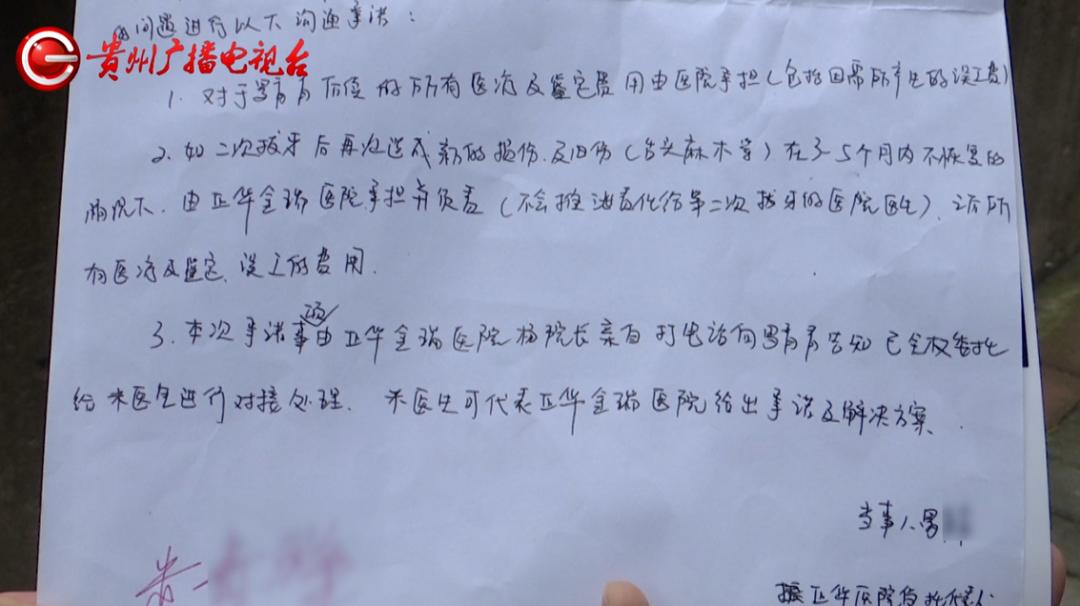 问题进行以下沟通承诺:
贵州广播电视台
1. 对于 后续的所有医疗及鉴定费用由医院承担(包括因需所产生的误工费)
2. 如二次拔牙后再次造成新的损伤.及旧伤(舌头麻木等)在3-5个月内不恢复的
情况下.由正华金瑞医院承担并负责(不会推注责任给第二次拔牙的医院医生),该所
有医疗及鉴定.误工的费用.
3. 本次承诺事项由正华金瑞医院杨院长亲自打电话向 告知已全权委托
给米医生进行对接处理. 米医生可代表正华金瑞医院给出承诺及解决方案.
当事人
正华医院